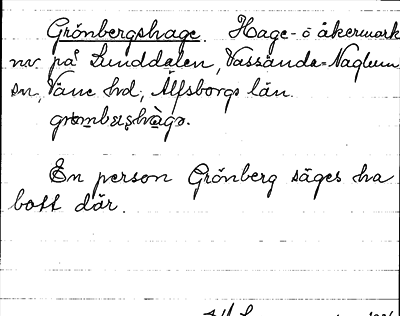 Grönbergshage. Hage- o åkermark
nv på Lunddalen, Vassända-Naglum
sn, Väne hd, Älfsborgs län.
En person Grönberg säges ha
bott där.